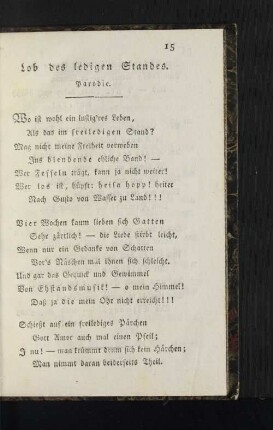 15
Lob des ledigen Standes.
Parodie.
Wo ist wohl ein lustig'res Leben,
Als das im freiledigen Stand?
Mag nicht meine Freiheit verweben
Ins blendende ehliche Band! —
Wer Fesseln trägt, kann ja nicht weiter!
Wer los ist, hüpft: heisa hopp! heiter
Nach Gusto von Wasser zu Land!!!
Vier Wochen kaum lieben sich Gatten
Sehr zärtlich! — die Liebe stirbt leicht,
Wenn nur ein Gedanke von Schatten
Vor's Näschen mal ihnen sich schleicht.
Und gar das Gezänk und Gewimmel
Von Ehstandsmusik! — o mein Himmel!
Daß zu die mein Ohr nicht erreicht!!!
Schießt auf ein freilediges Pärchen
Gott Amor auch mal einen Pfeil;
J nu! — man krümmt drum sich kein Härchen;
Man nimmt daran beiderseits Theil.